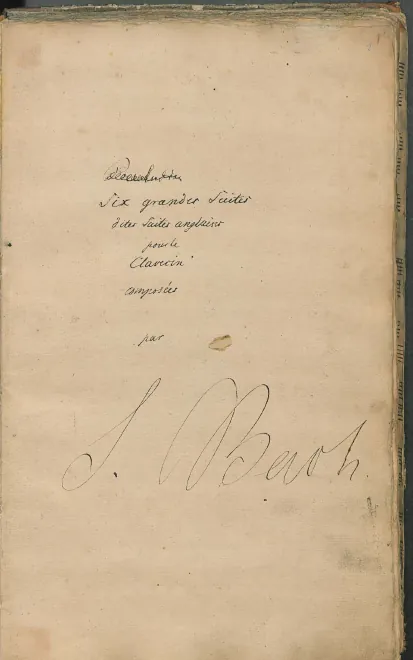 Six grandes Suites
dites Suites anglaises
pour le
Clavecin
composées
par
S. Bach.